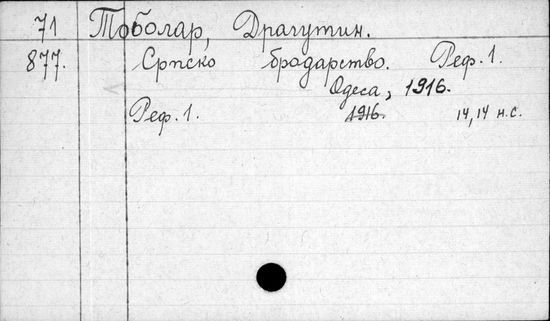 71 Тоболар, Драгутин.
877. Српско бродарство. Реф. 1.
Одеса, 1916.
Реф. 1. 1916. 14,14 н.с.